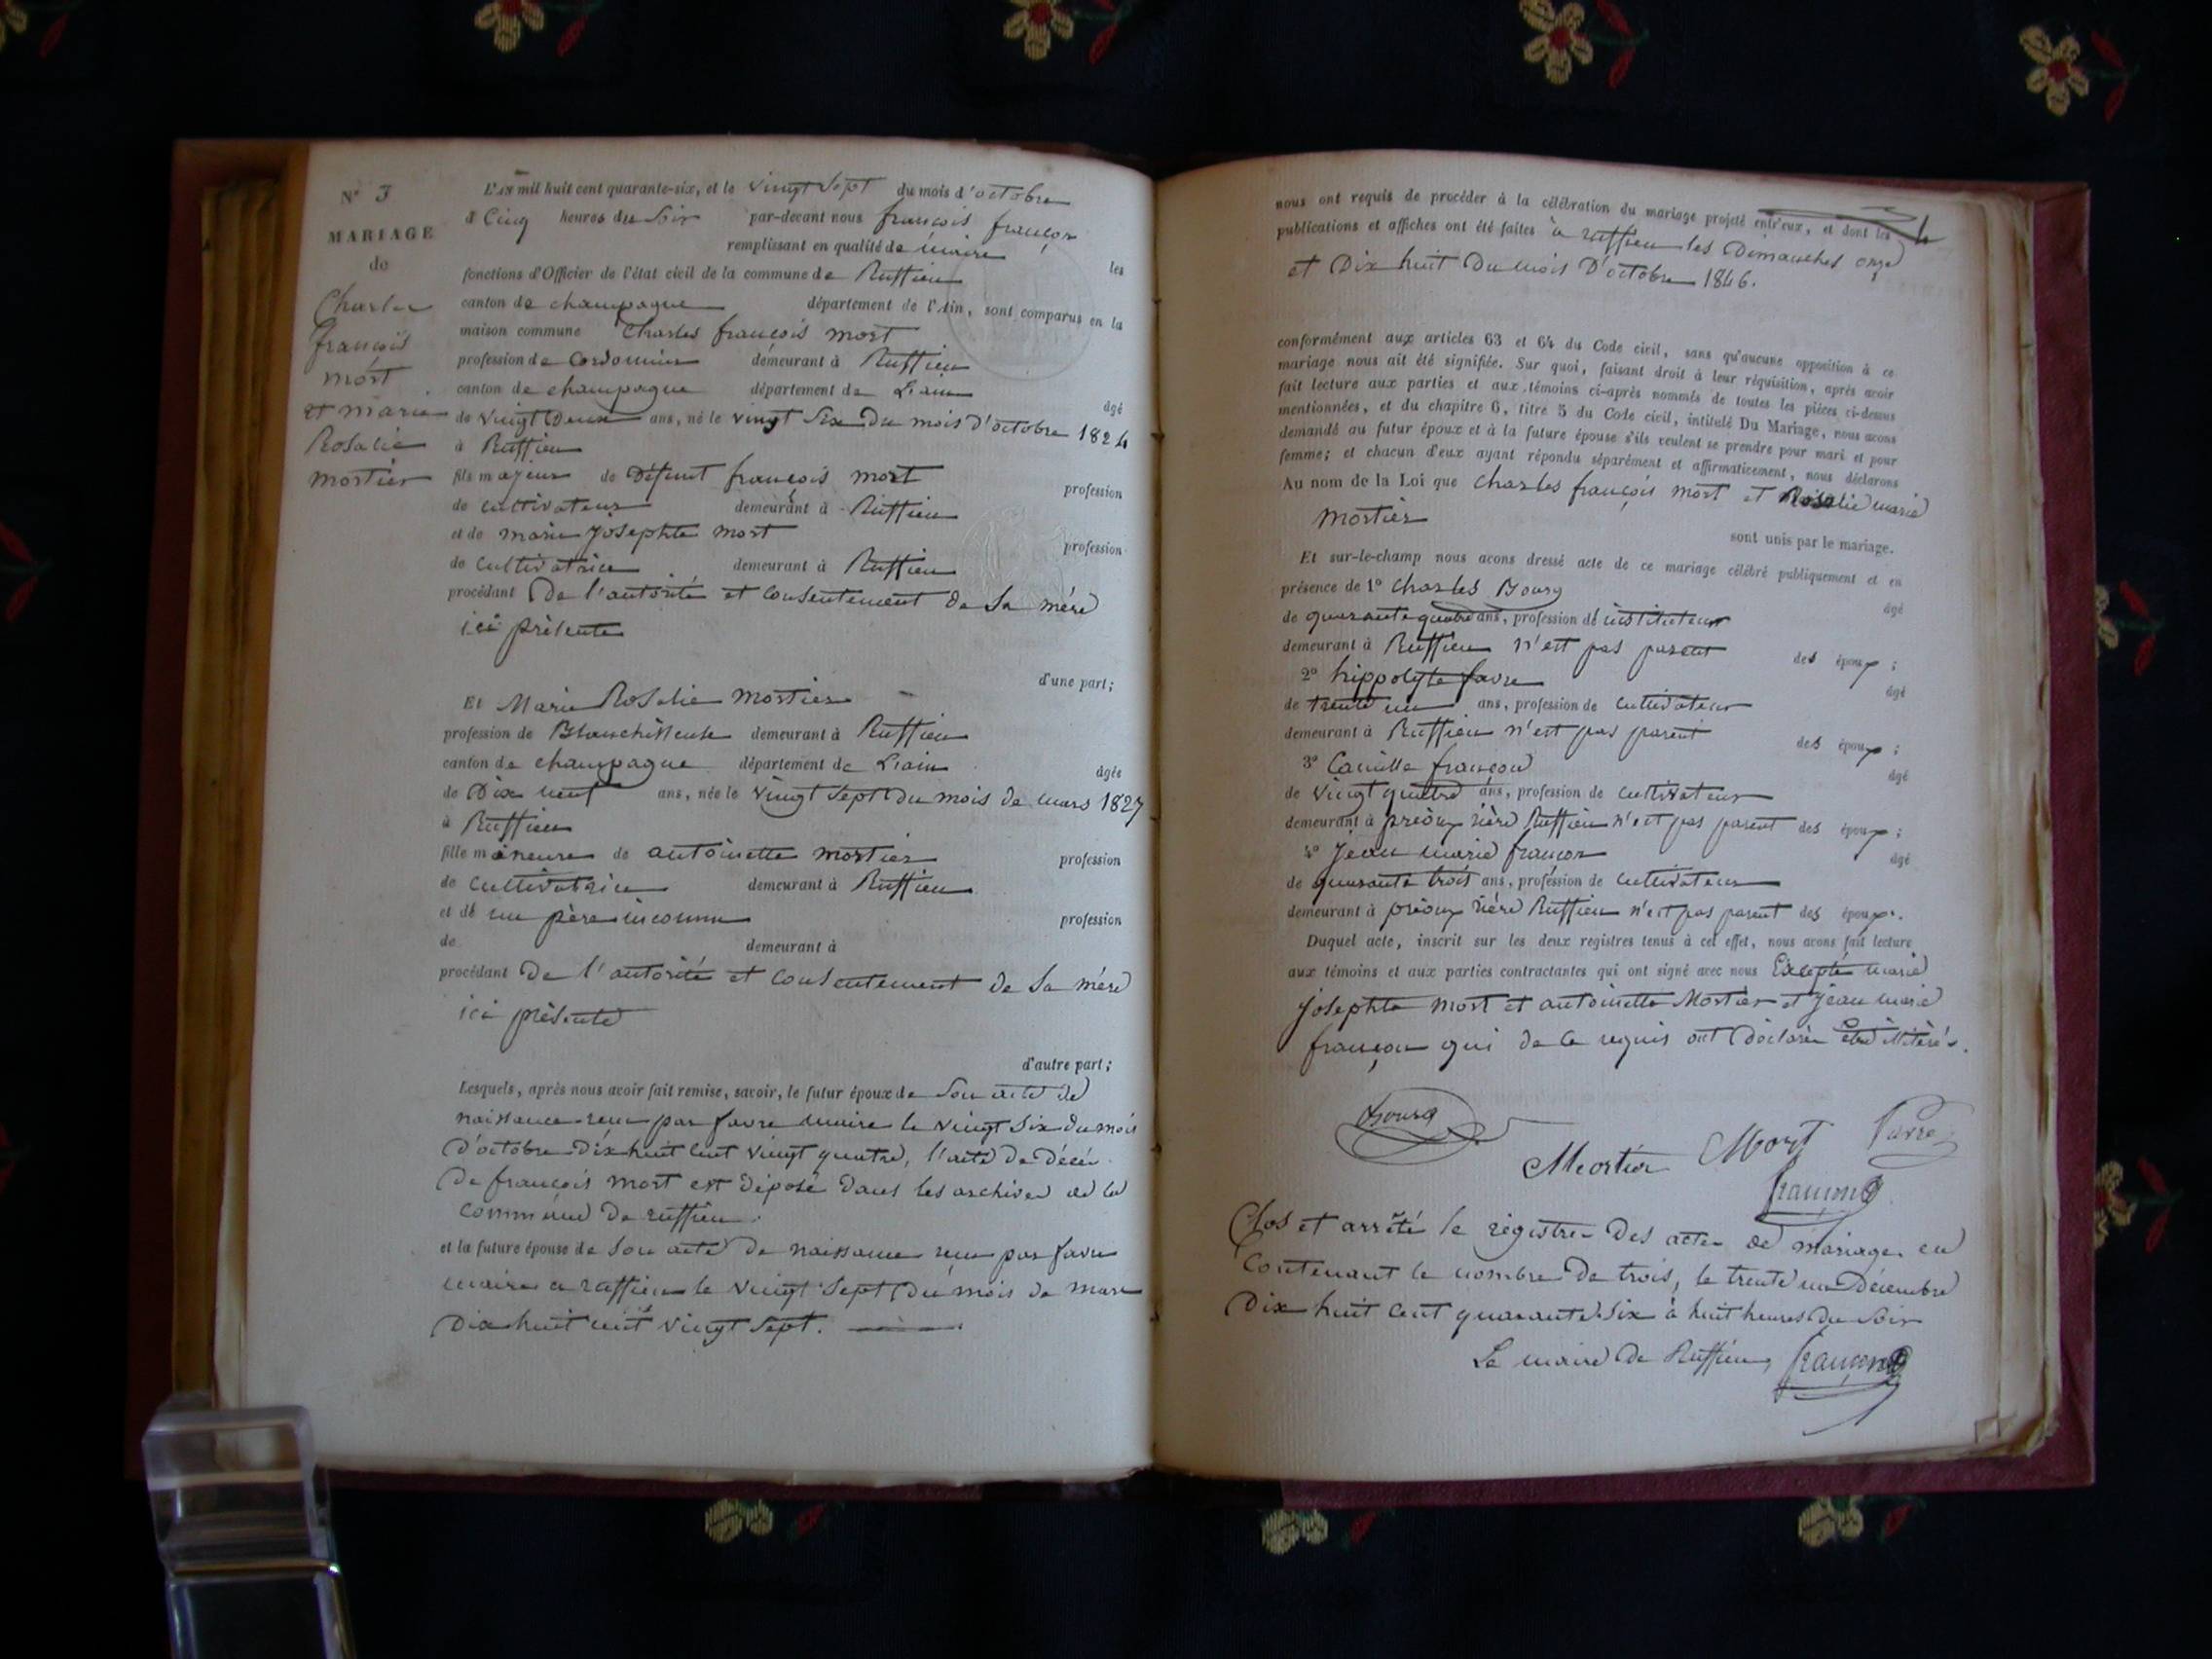 N° 3
MARIAGE
de
Charles
françois
mort
et marie
Rosalie
mortier
L'AN mil huit cent quarante-six, et le vingt Sept du mois d'octobre
à Cinq heures du Soir par-devant nous françois françon
remplissant en qualité de maire les
fonctions d'Officier de l'état civil de la commune de Ruffieu
canton de champagne département de l'Ain, sont comparus en la
maison commune Charles françois mort
profession de Cordonnier demeurant à Ruffieu
canton de champagne département de L'ain âgé
de vingt Deux ans, né le vingt Six Du mois D'octobre 1824
à Ruffieu
fils majeur de Défunt françois mort profession
de cultivateur demeurant à Ruffieu
et de marie Josephte mort profession
de cultivatrice demeurant à Ruffieu
procédant De l'autorité et Consentement De Sa mére
ici présente
d'une part;
Et Marie Rosalie mortier
profession de Blanchisseuse demeurant à Ruffieu
canton de champagne département de L'ain âgée
de Dix neuf ans, née le vingt Sept Du mois de mars 1827
à Ruffieu
fille mineure de antoinette mortier profession
de cultivatrice demeurant à Ruffieu
et de un père inconnu profession
de demeurant à
procédant De l'autorité et Consentement De Sa mére
ici présente
d'autre part;
Lesquels, après nous avoir fait remise, savoir, le futur époux de Son acte de
naissance reçu par favre maire le vingt Six du mois
D'octobre Dix huit cent vingt quatre, l'acte De Décès
De françois mort est déposé dans les archives de la
commune De ruffieu.
et la future épouse de Son acte De naissance reçu par favre
maire a ruffieu le vingt Sept Du mois De mars
Dix huit cent vingt Sept.
4
nous ont requis de procéder à la célébration du mariage projeté entr'eux, et dont les
publications et affiches ont été faites à ruffieu les Dimanches onze
et Dix huit Du mois D'octobre 1846.
conformément aux articles 63 et 64 du Code civil, sans qu'aucune opposition à ce
mariage nous ait été signifiée. Sur quoi, faisant droit à leur réquisition, après avoir
fait lecture aux parties et aux témoins ci-après nommés de toutes les pièces ci-dessus
mentionnées, et du chapitre 6, titre 5 du Code civil, intitulé Du Mariage, nous avons
demandé au futur époux et à la future épouse s'ils veulent se prendre pour mari et pour
femme; et chacun d'eux ayant répondu séparément et affirmativement, nous déclarons
Au nom de la Loi que Charles françois mort et Rosalie marie
mortier
sont unis par le mariage.
Et sur-le-champ nous avons dressé acte de ce mariage célébré publiquement et en
présence de 1° Charles Bourg âgé
de quarante quatre ans, profession de instituteur
demeurant à Ruffieu n'est pas parent des époux;
2° hippolyte favre âgé
de trente un ans, profession de cultivateur
demeurant à Ruffieu n'est pas parent des époux;
3° Camille françon âgé
de vingt quatre ans, profession de cultivateur
demeurant à prioux rière Ruffieu n'est pas parent des époux;
4° Jean marie françon âgé
de quarante trois ans, profession de cultivateur
demeurant à prioux rière Ruffieu n'est pas parent des époux.
Duquel acte, inscrit sur les deux registres tenus à cet effet, nous avons fait lecture
aux témoins et aux parties contractantes qui ont signé avec nous Excepté marie
Josephte mort et antoinette Mortier et Jean marie
françon qui de ce requis ont Déclaré être illitéré.
Bourg
Mortier Mort Favre
françon
Clos et arrêté le registre Des actes de mariage en
Contenant le nombre De trois, le trente un Décembre
Dix huit cent quarante Six à huit heures du Soir
Le maire De Ruffieu, françon